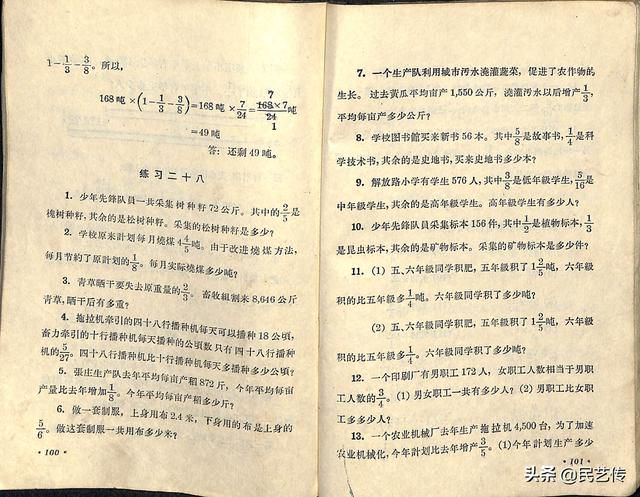 1－1/3－3/8。所以，
168吨×(1－1/3－3/8)=168吨×7/24=168×7/24吨
7
1
=49吨
答：还剩49吨。
练习二十八
1. 少年先鋒队員一共采集树种籽72公斤。其中的2/5是
槐树种籽，其余的是松树种籽。采集的松树种籽是多少？
2. 学校原来計划每月燒煤4 4/5吨。由于改进燒煤方法，
每月节約了原計划的1/8。每月实际燒煤多少吨？
3. 青草晒干要失去原重量的2/3。畜牧組割来8,646公斤
青草，晒干后有多重？
4. 拖拉机牵引的四十八行播种机每天可以播种18公頃，
畜力牵引的十行播种机每天播种的公頃数只有四十八行播种
机的5/27。四十八行播种机比十行播种机每天多播种多少公頃？
5. 張庄生产队去年平均每亩产稻872斤，今年平均每亩
产量比去年增加1/8。今年平均每亩产稻多少斤？
6. 做一套制服，上身用布2.4米，下身用的布是上身的
5/6。做这套制服一共用布多少米？
·100·
7. 一个生产队利用城市污水澆灌蔬菜，促进了农作物的
生长。过去黄瓜平均亩产1,550公斤，澆灌污水以后增产1/3，
平均每亩产多少公斤？
8. 学校图书館买来新书56本。其中5/8是故事书，1/4是科
学技术书，其余的是史地书，买来史地书多少本？
9. 解放路小学有学生576人，其中3/8是低年級学生，5/16是
中年級学生，其余的是高年級学生。高年級学生有多少人？
10. 少年先鋒队員采集标本156件，其中1/2是植物标本，1/3
是昆虫标本，其余的是矿物标本。采集的矿物标本是多少件？
11. (1) 五、六年級同学积肥，五年級积了1 2/5吨，六年級
积的比五年級多1/4吨。六年級同学积了多少吨？
(2) 五、六年級同学积肥，五年級积了1 2/5吨，六年級
积的比五年級多1/4。六年級同学积了多少吨？
12. 一个印刷厂有男职工172人，女职工人数相当于男职
工人数的3/4。(1) 男女职工一共有多少人？(2) 男职工比女职
工多多少人？
13. 一个农业机械厂去年生产拖拉机4,500台，为了加速
农业机械化，今年計划比去年增产3/5。(1)今年計划生产多少
·101·
头条 @民艺传